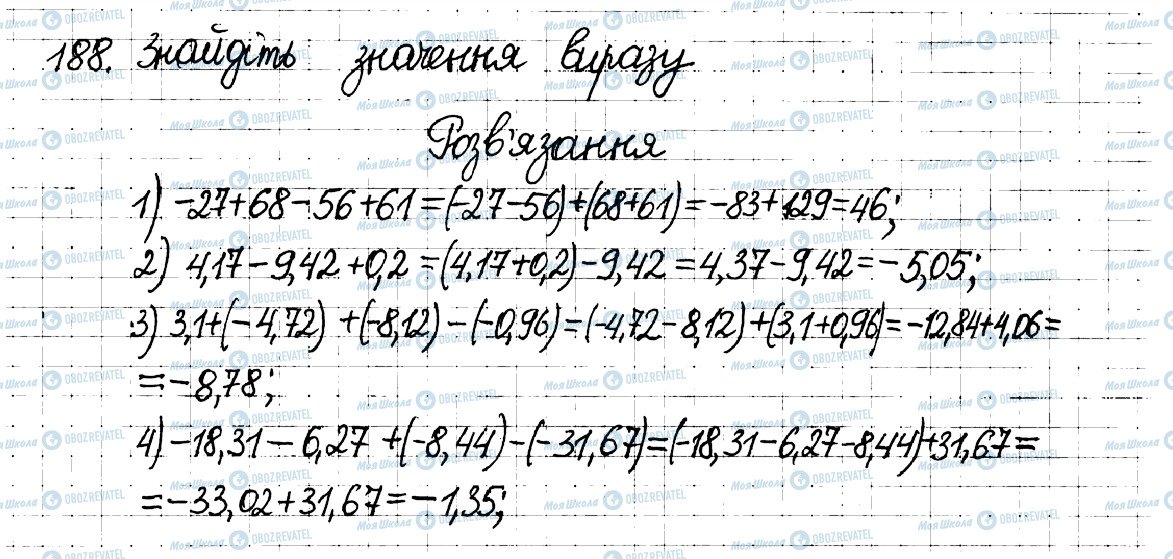 188. Знайдіть значення виразу
Розв'язання
1) -27+68-56+61=(-27-56)+(68+61)=-83+129=46;
2) 4,17-9,42+0,2=(4,17+0,2)-9,42=4,37-9,42=-5,05;
3) 3,1+(-4,72)+(-8,12)-(-0,96)=(-4,72-8,12)+(3,1+0,96)=-12,84+4,06=
=-8,78;
4) -18,31-6,27+(-8,44)-(-31,67)=(-18,31-6,27-8,44)+31,67=
=-33,02+31,67=-1,35;